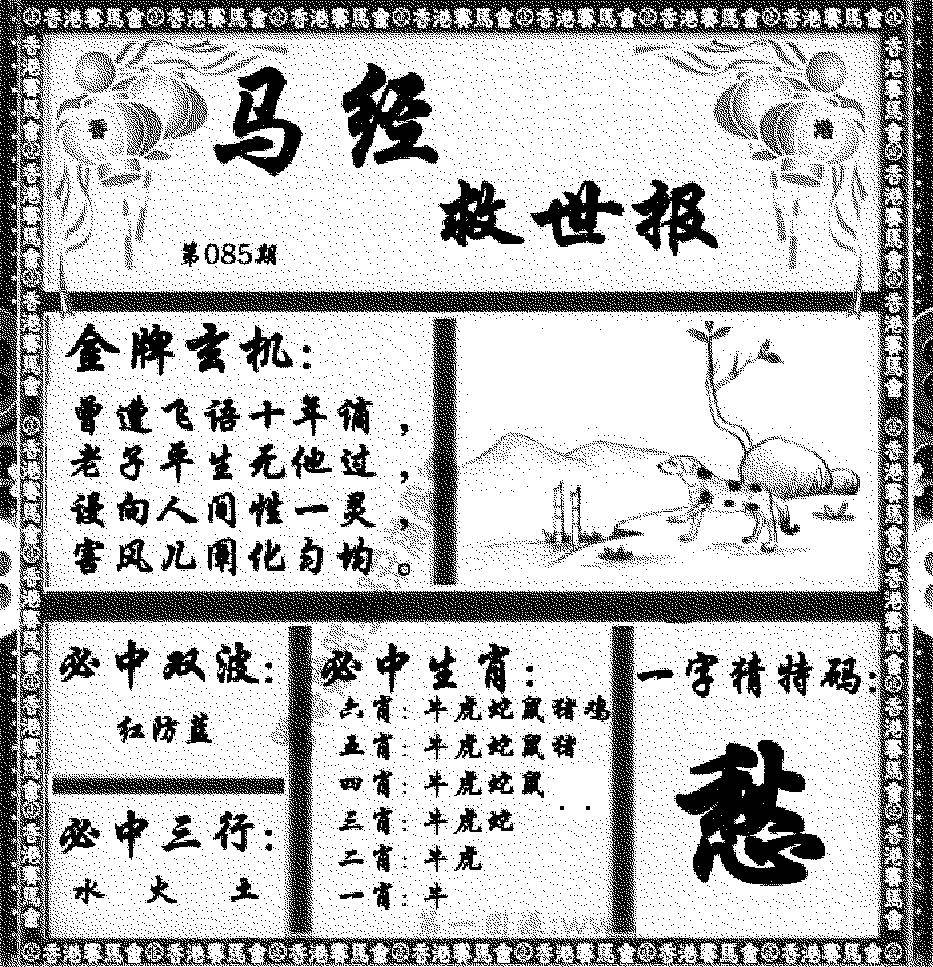 香港賽馬會 香港賽馬會 香港賽馬會 香港賽馬會 香港賽馬會 香港賽馬會 香港賽馬會
香
港
马经
救世报
第085期
金牌玄机:
曾遭飞语十年谪,
老子平生无他过,
谩向人间性一灵,
害风儿阐化匀均。
必中双波:
红防蓝
必中三行:
水 火 土
必中生肖:
六肖:牛虎蛇鼠猪鸡
五肖:牛虎蛇鼠猪
四肖:牛虎蛇鼠
三肖:牛虎蛇
二肖:牛虎
一肖:牛
一字猜特码:
愁
香港賽馬會 香港賽馬會 香港賽馬會 香港賽馬會 香港賽馬會 香港賽馬會 香港賽馬會